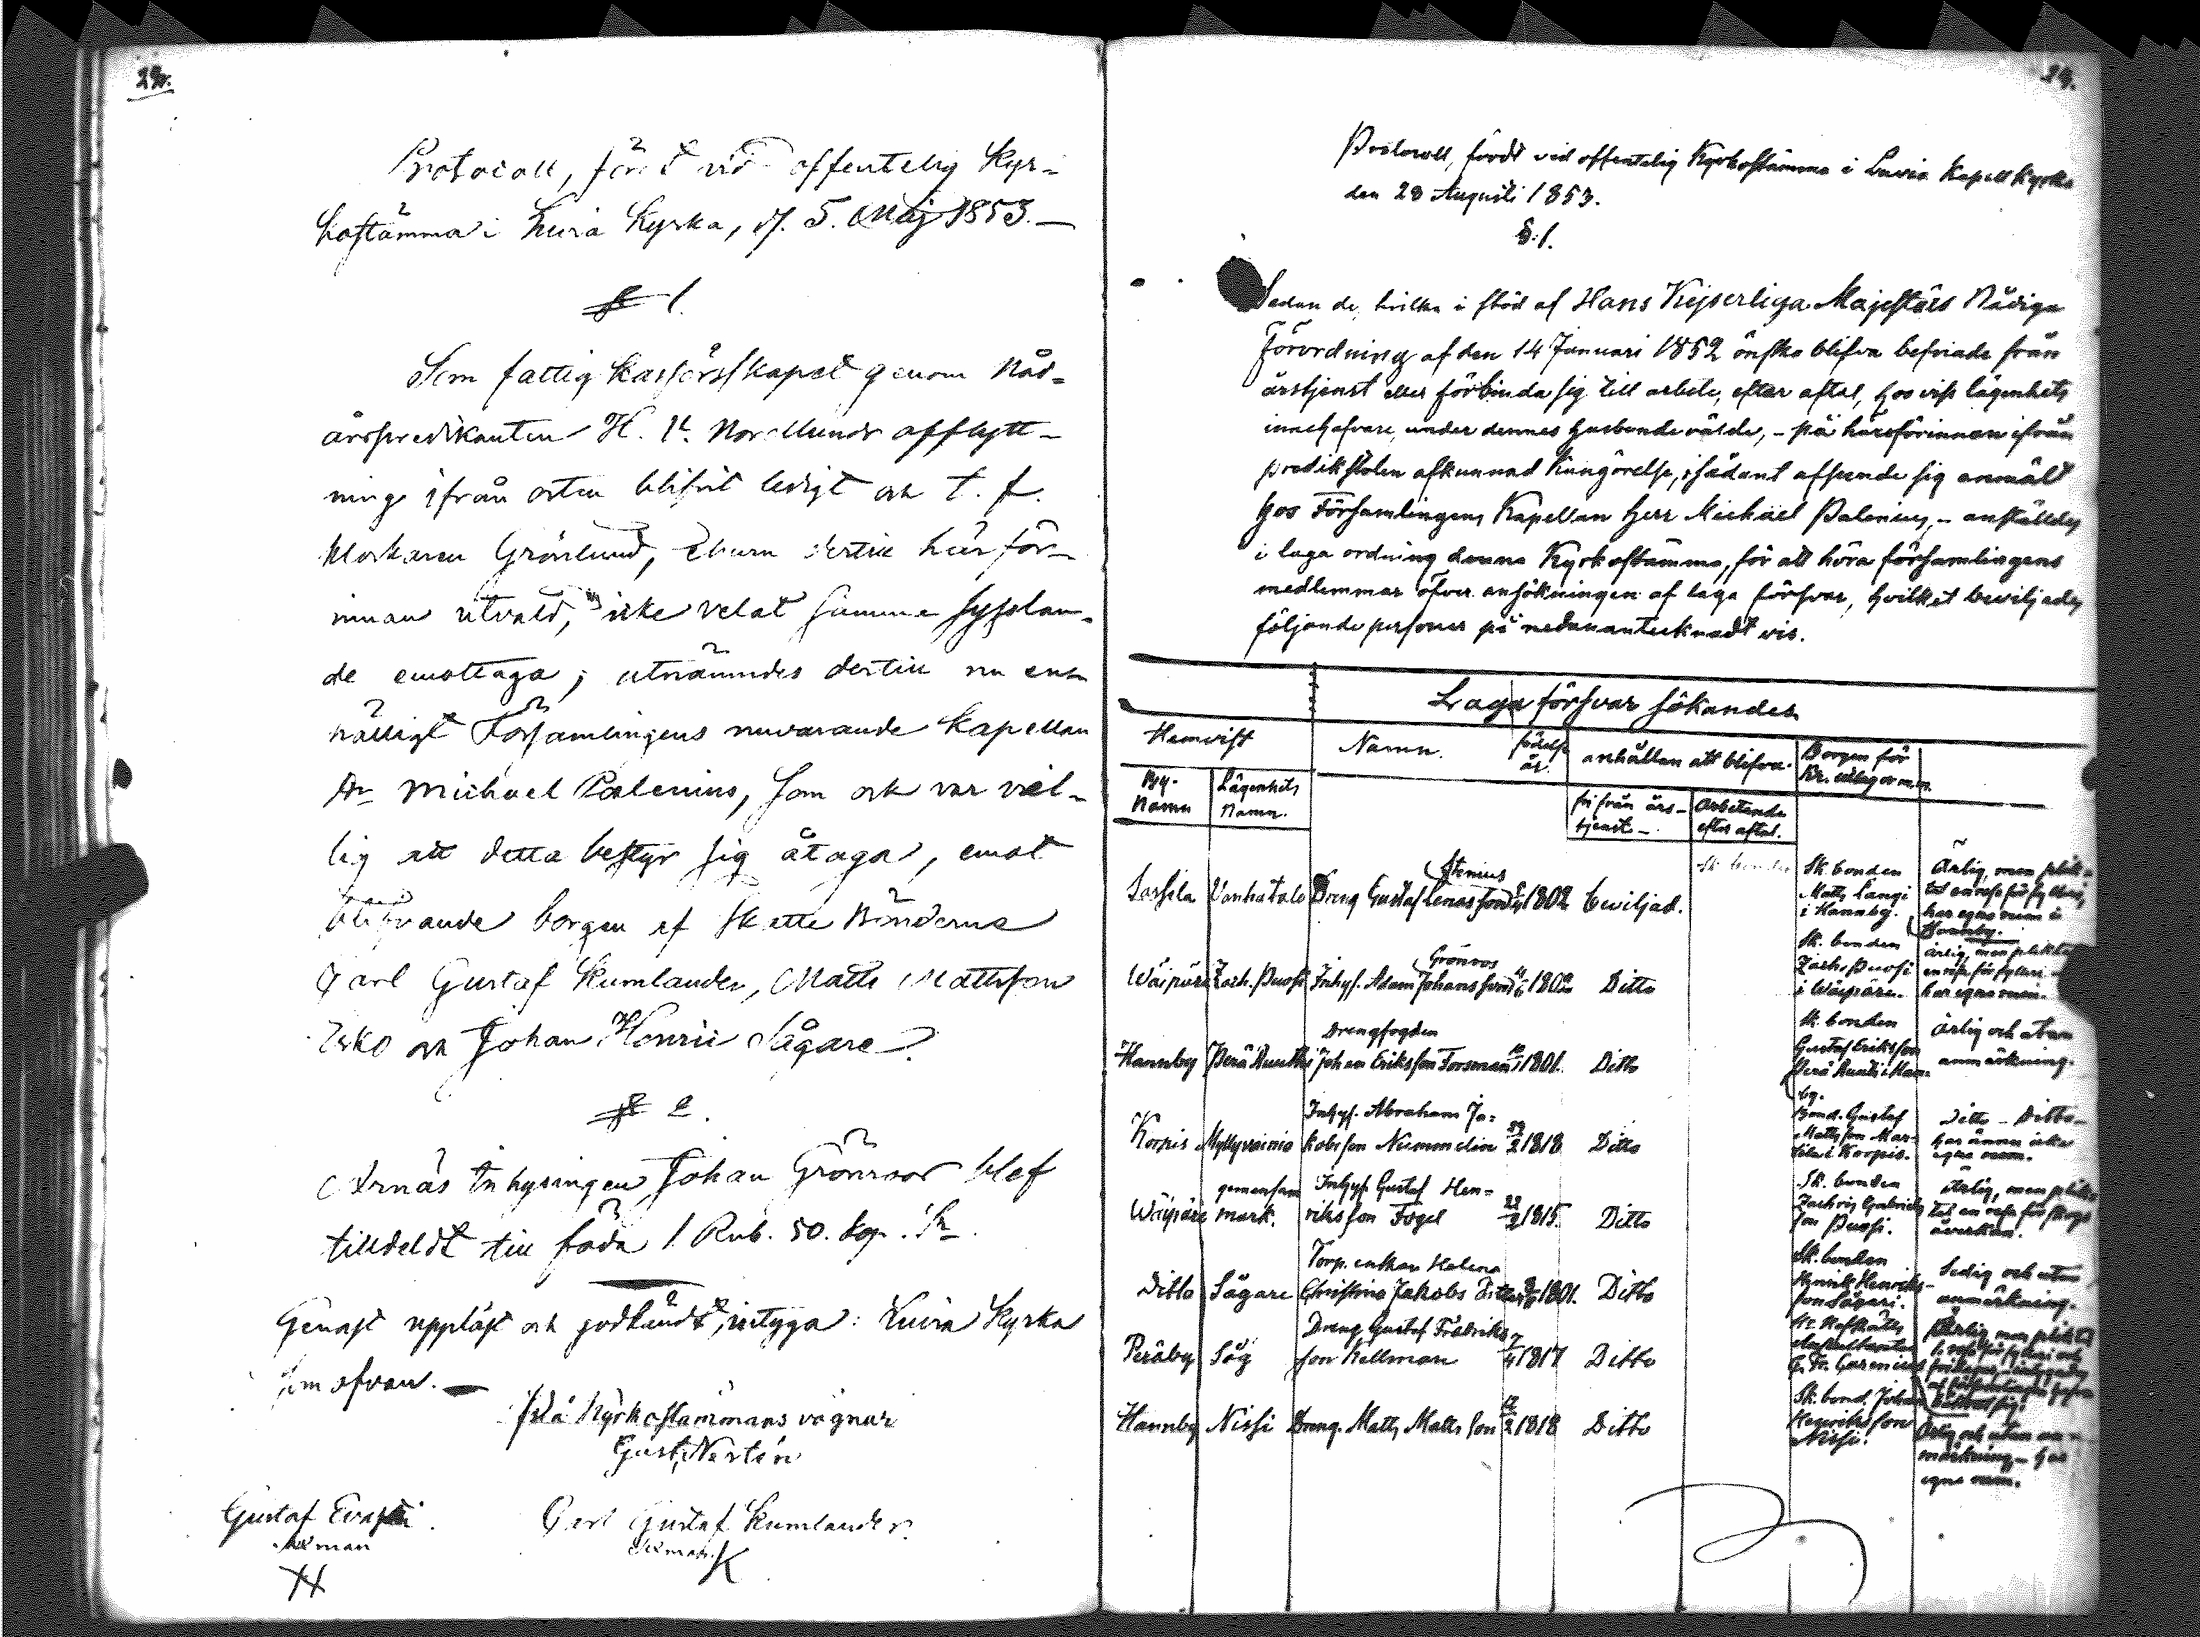 Protocoll, fördt vid offentelig Kyr-
kostämma i Luvia Kyrka, d. 5. Maj 1853.—
§ 1.
Som fattig kassörsskapet genom Nåd-
årspredikanten H. Nordlunds afflytt-
ning ifrån orten blifvit ledigt och t. f.
klockaren Grönlund, ehuru dertill här för-
innan utvald, icke velat samma sysslan-
de emottaga; utnämndes dertill nu en-
hälligt Församlingens nuvarande Kapellan
Michael Palenius, som ock var vil-
lig att detta bestyr sig åtaga, emot
blifvande borgen af Skatte Bönderne
Carl Gustaf Kumlander, Matts Mattsson
och Johan Henric Sågare.
§ 2.
Inhysingen Johan Grönroos blef
tilldeldt till föda 1 Rub. 50. kop. Sr.
Genast uppläst och godkändt, intyga: Luvia Kyrka
som ofvan.—
På Kyrkostämmans vägnar
Gust. Nortén
Gustaf
Carl Gustaf Kumlander
K
24.
Protocoll, fördt vid offentelig Kyrkostämma i Luvia Kapell Kyrka
den 28 Augusti 1853.
§. 1.
Sedan de, hvilka i stöd af Hans Kejserliga Majestäts Nådiga
Förordning af den 14 Januari 1852 önska blifva befriade från
årstjenst eller förbinda sig till arbete, efter aftal, hos viss lägenhets
innehafvare, under dennes husbondevälde, - på härförinnan ifrån
predikstolen afkunnad Kungörelse, i sådant afseende sig anmält
hos Församlingens Kapellan Herr Michaël Palenius, - anställdes
i laga ordning denna Kyrkostämma, för att höra församlingens
medlemmar öfver ansökningen af laga försvar, hvilket beviljades
följande personer på nedanantecknadt vis.
Laga försvar sökandes
Hemvist Namn. födelse år. anhållan att blifva Borgen för Kr. utlagor m.m.
By- Namn Lägenhets Namn. fri från års- tjenst- Arbetande efter aftal.
Sassila Vanhatalo Dreng Gustaf Stenius 1802 beviljad. Sk. bonden
Matts Langi i Hannby. Ärlig, men har egna rum i Hannby.
Wäipäre Zach. Pussi Inhys. Adam Johansson Grönroos 1802 Ditto Sk. bonden
Zachs Pussi i Wäipäre. ärlig, har egna rum.
Hannby Perä Anttis Drengfogden Johan Eriksson Forsman 1801. Ditto Sk. bonden
Gustaf Eriksson Perä Antti i Han- by. ärlig och utan anmärkning.
Korpis Myllyvainio Inhys. Abraham Ja- kobsson Nummelin 1818 Ditto Bond. Gustaf
Mattsson i Korpis. Ditto - Ditto - har ännu icke egna rum.
Wäipäre gemensam mark. Inhys. Gustaf Hen- riksson Fogel 22/2 1815. Ditto Sk. bonden
Zachris Gabriels son Pussi. ärlig, men åverkan.
Ditto Sågare Torp. enkan Helena Christina Jakobs 1801. Ditto Sk. bonden
Henrik Henriks- son Sågari. Sedig och utan anmärkning.
Peräby Såg Dreng Gustaf Fredriks son Kellman 1817 Ditto
Hannby Nissi Dreng. Matts Matts son 1818 Ditto Sk. bond. Johan
Henriksson Nissi. Ärlig och utan an- märkning - har egna rum.